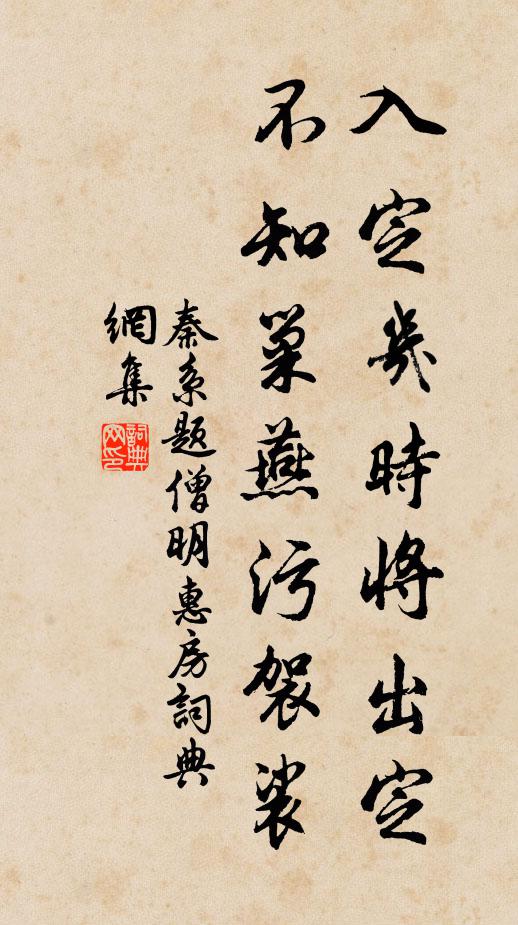 入定幾時將出定
不知巢燕污袈裟
秦系題僧明惠房詞典
網集
詞典
网印